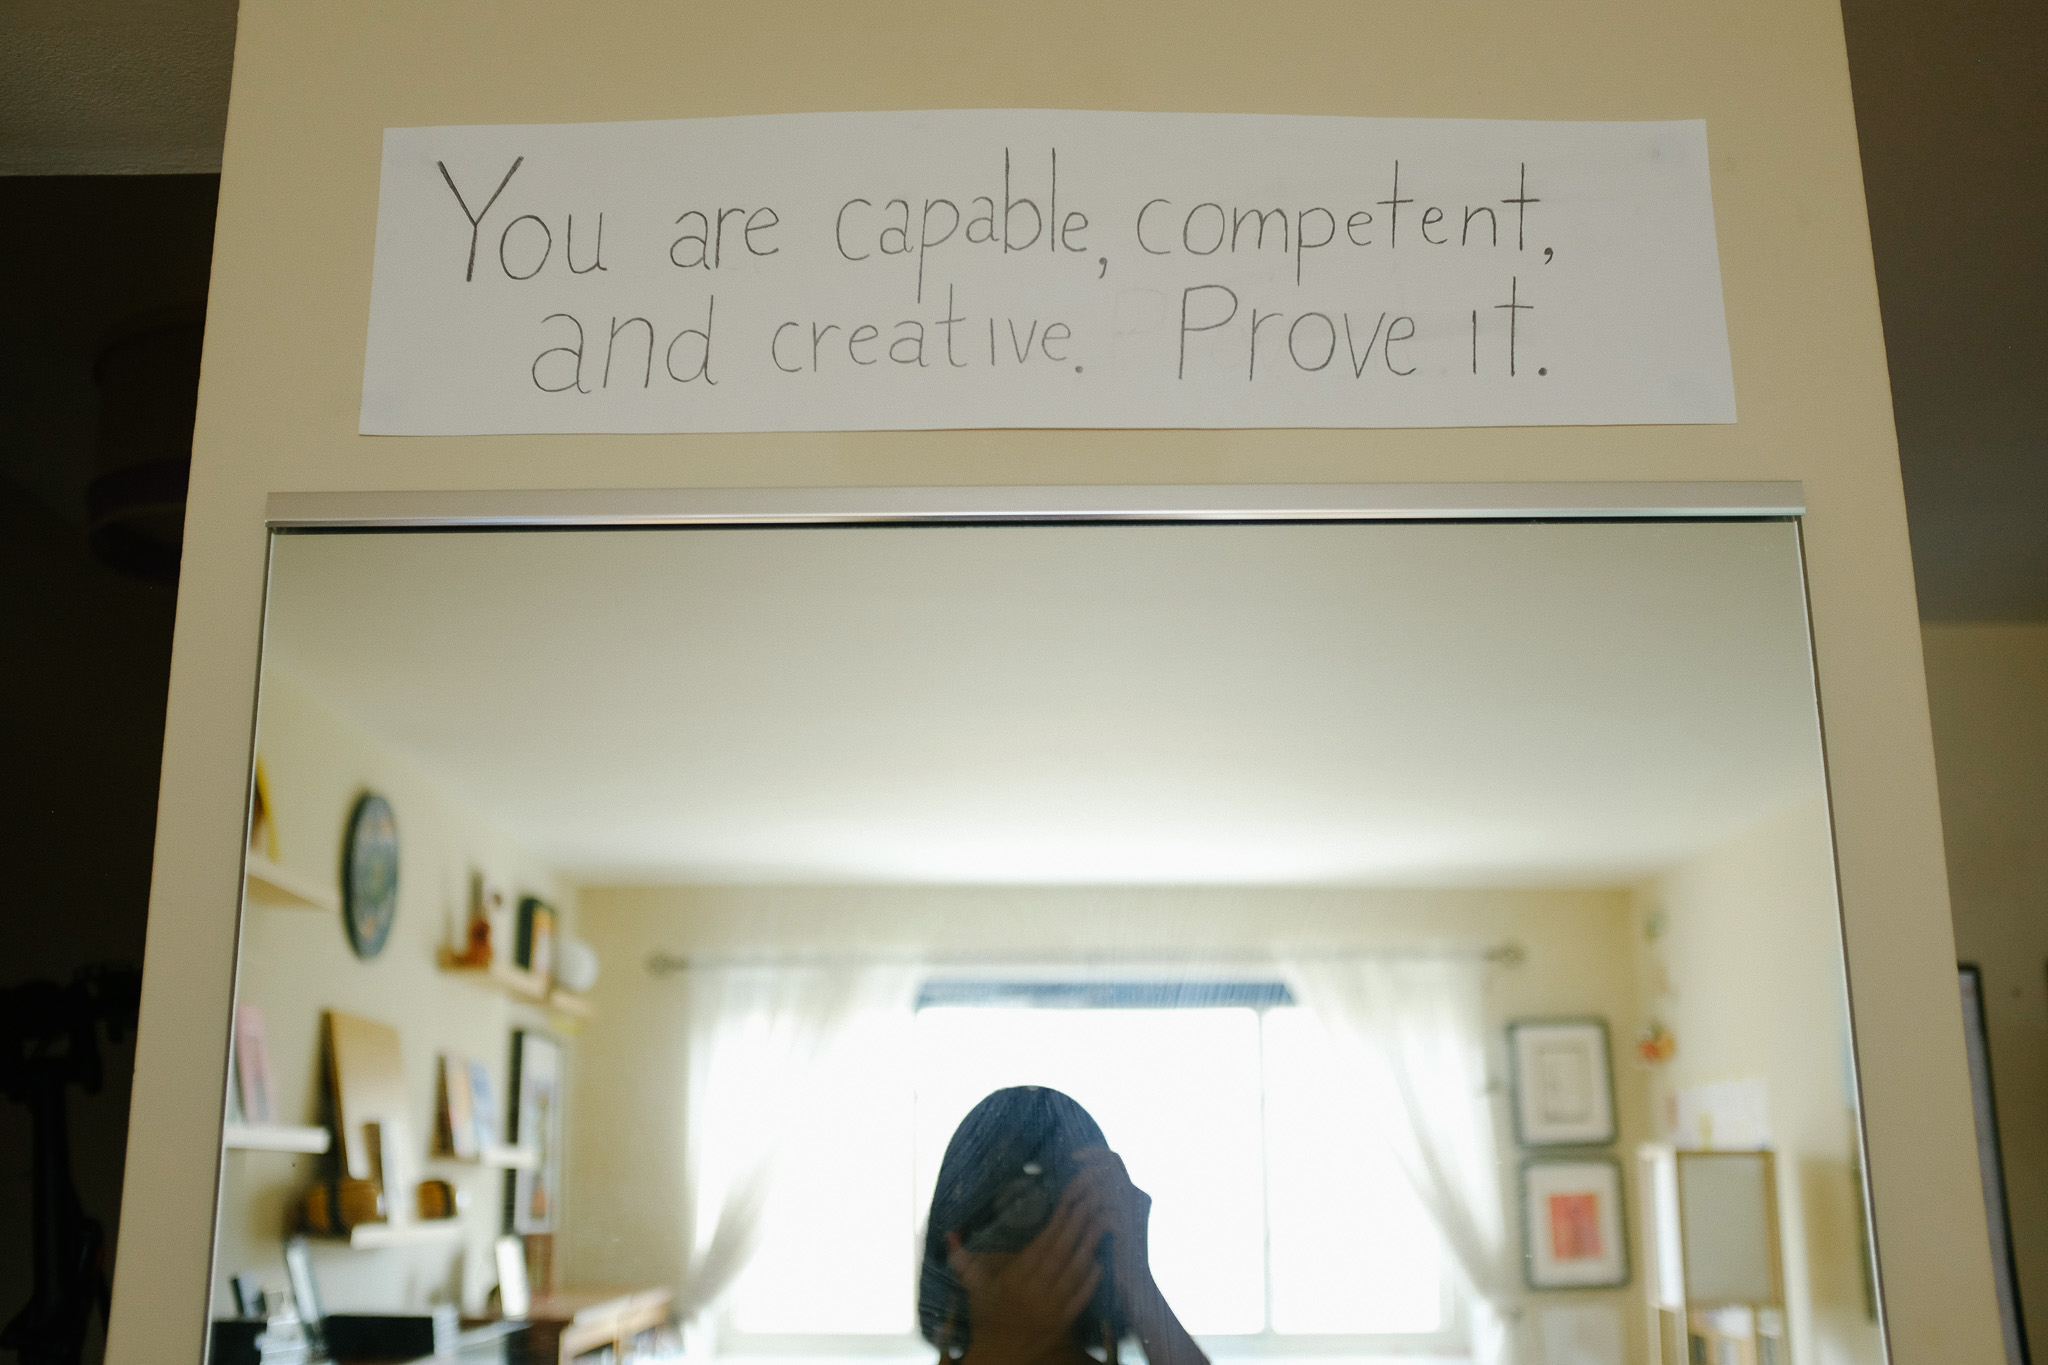 You are capable, competent,
and creative. Prove it.